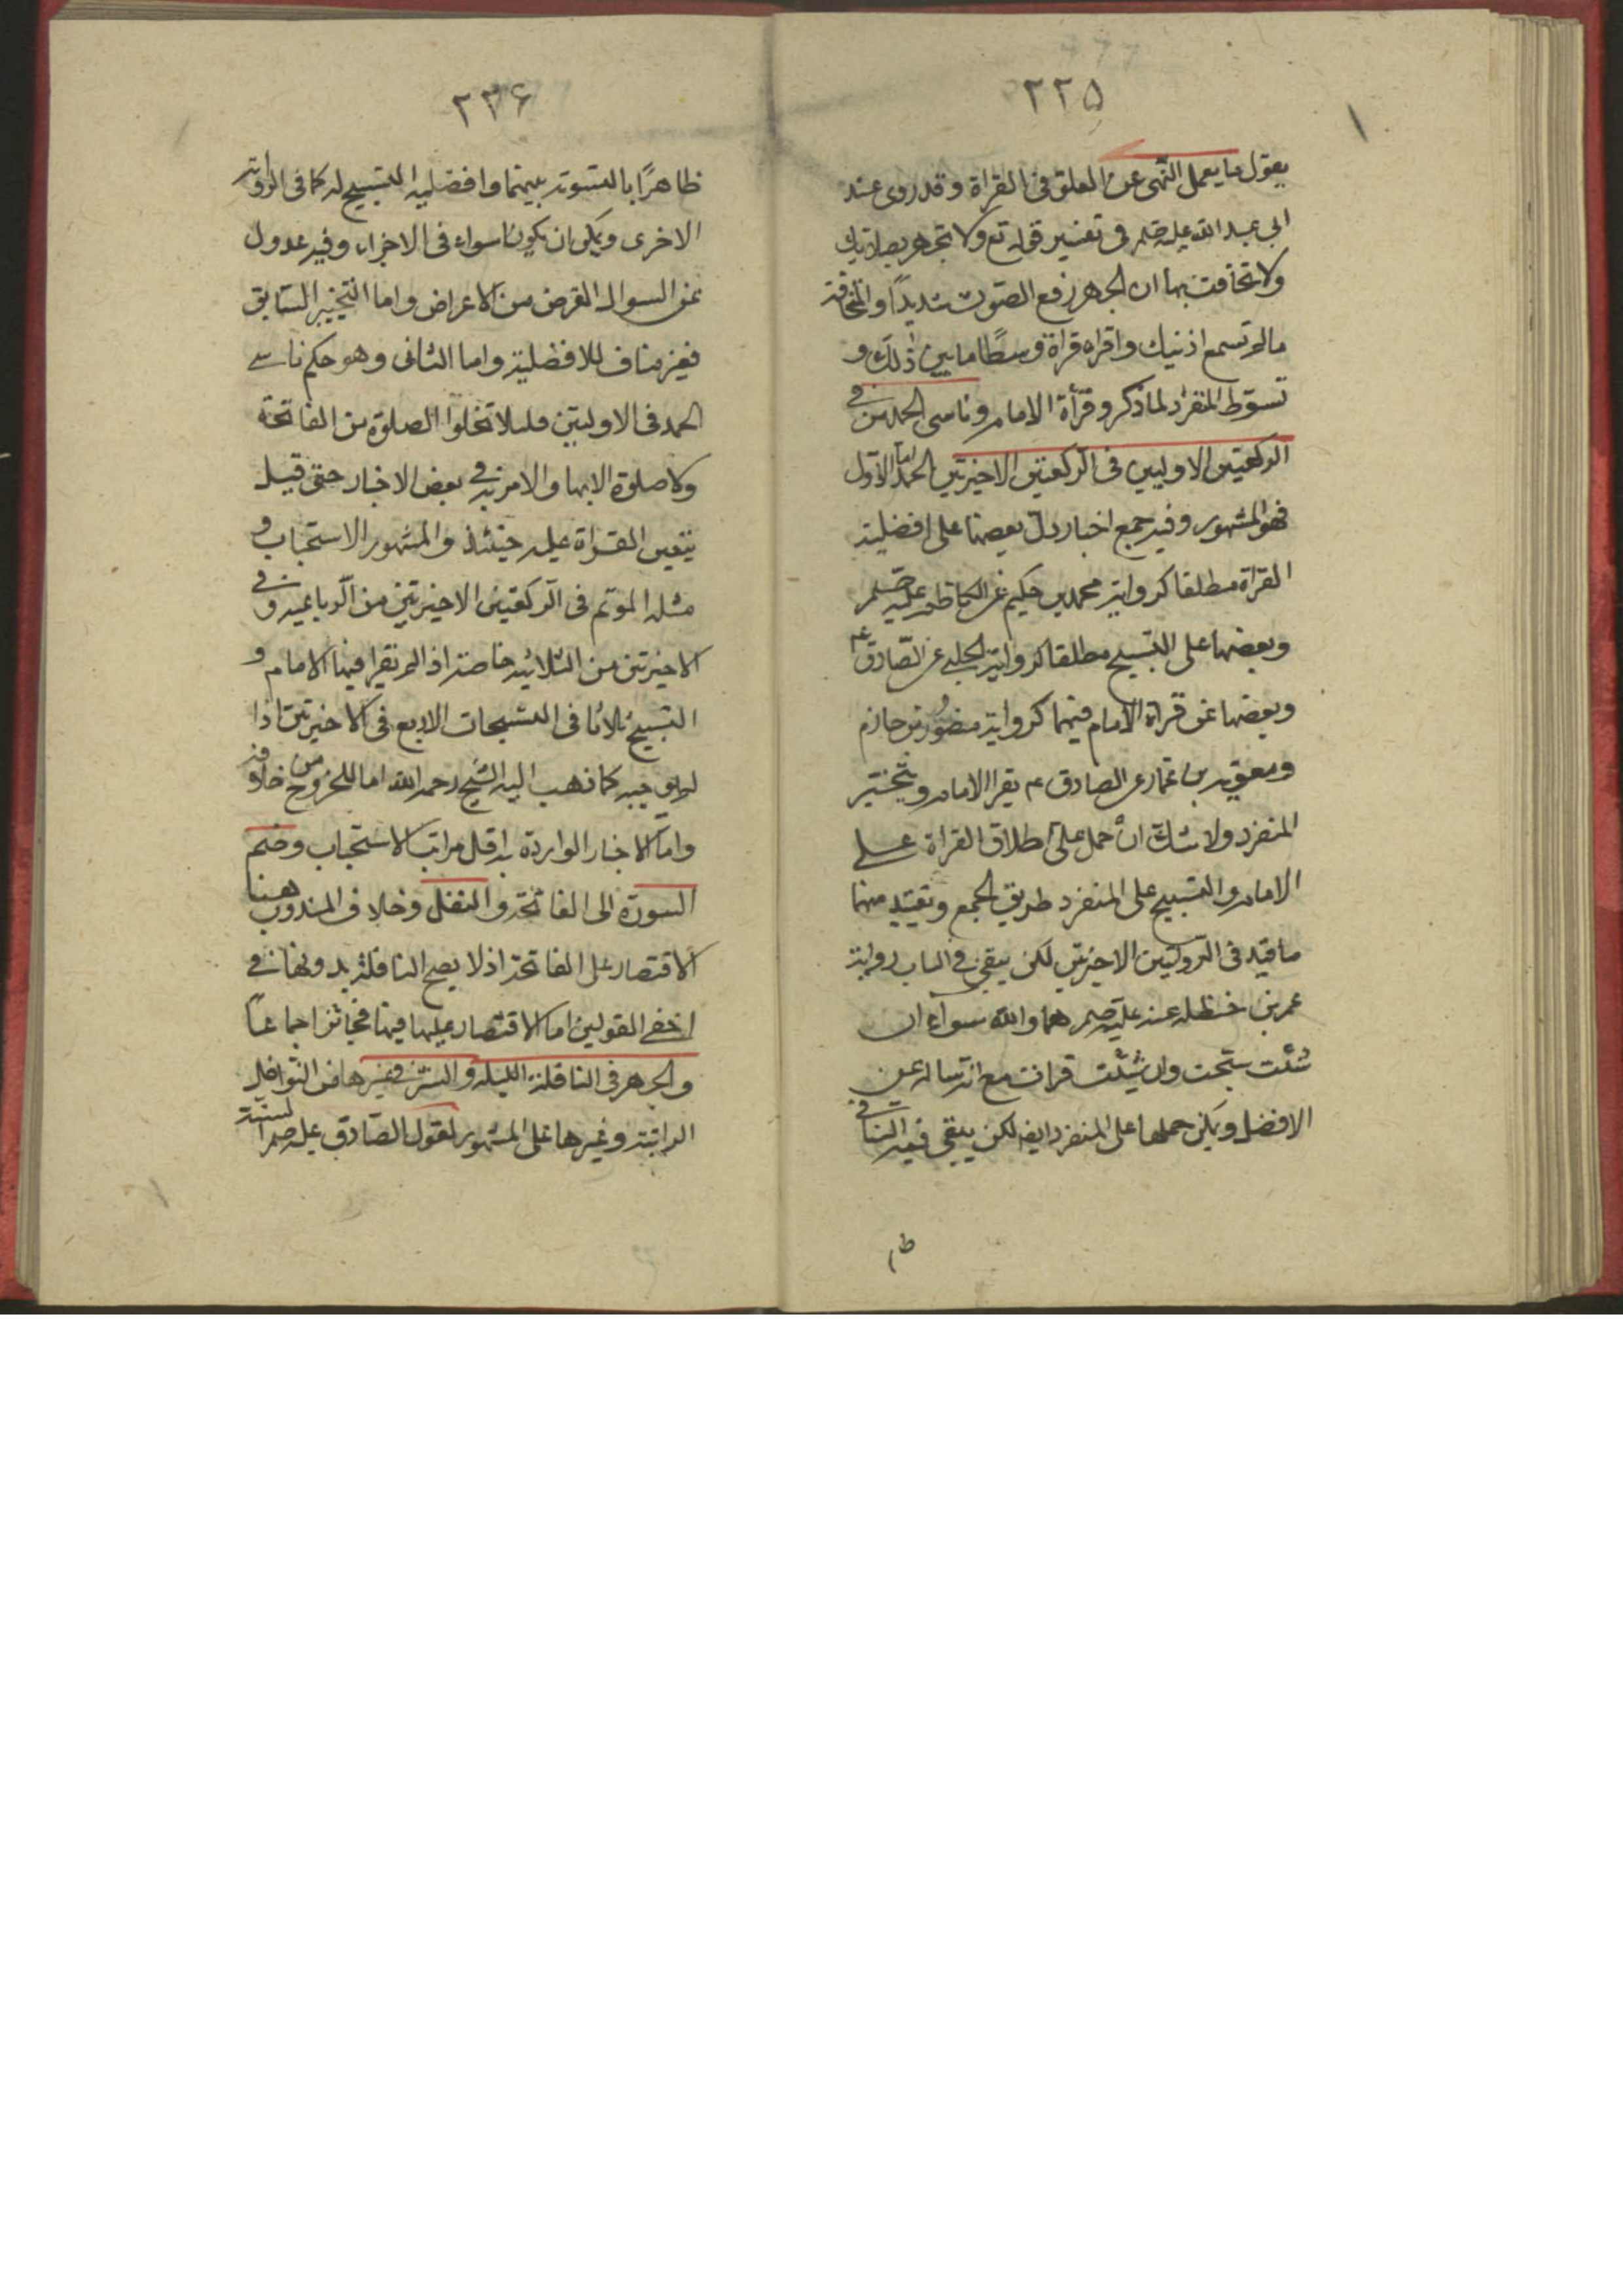 ٢٢٥
يقول ما يعمل النهى عن العلق فى القراة وقد روى عند
ابى عبد الله عليه صلم فى تفسير قوله تع ولا تجهر بصلاتك
ولا تخافت بها ان الجهر رفع الصوت شديدًا والمخافتة
مالم تسمع اذنيك واقراه قراة وسطًا مابين ذلك و
توسط المنفرد لما ذكر وقرأة الامام وناسى الحمد من فى
الركعتين الاوليين فى الركعتين الاخيرتين الحمد اما الاول
فهو المشهور وفيه جمع اخبار دل بعضها على افضلية
القراة مطلقا كرواية محمد بن حكيم عن الكاظم عليه صلم
وبعضها على التسبيح مطلقا كرواية الحلبى عن الصّادق ع
وبعضها عن قراة الامام فيهما كرواية منصور بن حازم
ومعوية بن عمار عن الصادق ع يقرا الامام ويتخير
المنفرد ولا شك ان حمل على اطلاق القراة على
الامام والتسبيح على المنفرد طريق الجمع وتقييد منهما
ما قيد فى الروايتين الاخيرتين لكن يبقى فى الباب رواية
عمر بن حنظله عنه عليه صلم هما والله سواء ان
شئت سبحت وان شئت قرات مع انه ساله عن
الافضل ويمكن حملها على المنفرد ايضا لكن يبقى فيه التنافى
ظاهرًا بالتسوية بينهما وافضلية التسبيح له كما فى الرواية
٢٣۶
الاخرى ويمكن ان يكونا سواء فى الاجزاء وفيه عدول
عن السوال لغرض من الاعراض واما التخيير السابق
فغير مناف للافضلية واما الثانى وهو حكم ناسى
الحمد فى الاوليتين فلئلا تخلوا الصلوة من الفاتحة
ولا صلوة الا بها والامر به فى بعض الاخبار حتى قيل
يتعين القراة عليه حينئذ والمشهور الاستحباب و
مثله الموتم فى الركعتين الاخيرتين من الرباعية وفى
الاخيرتين من الثلاثية خاصة اذا لم يقرا فيها الامام و
التسبيح ثلاثا فى التسبيحات الاربع فى الاخيرتين اذا
لم يوجبه كما ذهب اليه الشيخ رحمه الله اما للخروج من خلافه
واما الاخبار الواردة به اقل مراتب الاستحباب وضم
السورة الى الفاتحة والنفل وخلاف المندوب هنا
الاقتصار على الفاتحة اذ لا يصح النافلة بدونها فى
اخفى القولين اما الاقتصار عليها فيها فجائز اجماعًا
والجهر فى النافلة الليله والسر فى غيرها من النوافل
الراتبة وغيرها على المشهور لقول الصّادق عليه صلم السنة